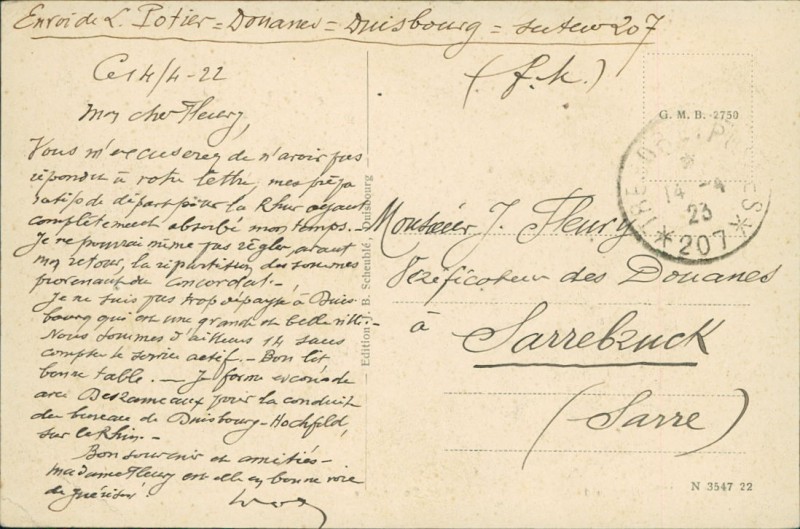 Envoi de L. Potier = Douanes = Duisbourg = secteur 207
(f.m.)
Ce 14/4-22
Mon cher Fleury,
Vous m'excuserez de n'avoir pas
répondu à votre lettre, mes prépa
ratifs de départ pour la Rhur ayant
complètement absorbé mon temps. -
Je ne pourrai même pas régler, avant
mon retour, la répartition des sommes
provenant du concordat. -
Je ne suis pas trop dépaysé à Duis
bourg qui est une grande et belle ville. -
Nous sommes d'ailleurs 14 sans
compter le service actif. - Bon lit
bonne table. - Je forme
avec Deszameaux pour la conduite
du bureau de Duisbourg-Hochfeld,
sur le Rhin. -
Bon souvenir et amitiés -
madame Fleury est elle en bonne voie
de guérison?
Edition J. B. Scheuble, Duisbourg
G. M. B. 2750
14 -4
23
*207*
Monsieur J. Fleury
Vérificateur des Douanes
à
Sarrebruck
(Sarre)
N 3547 22